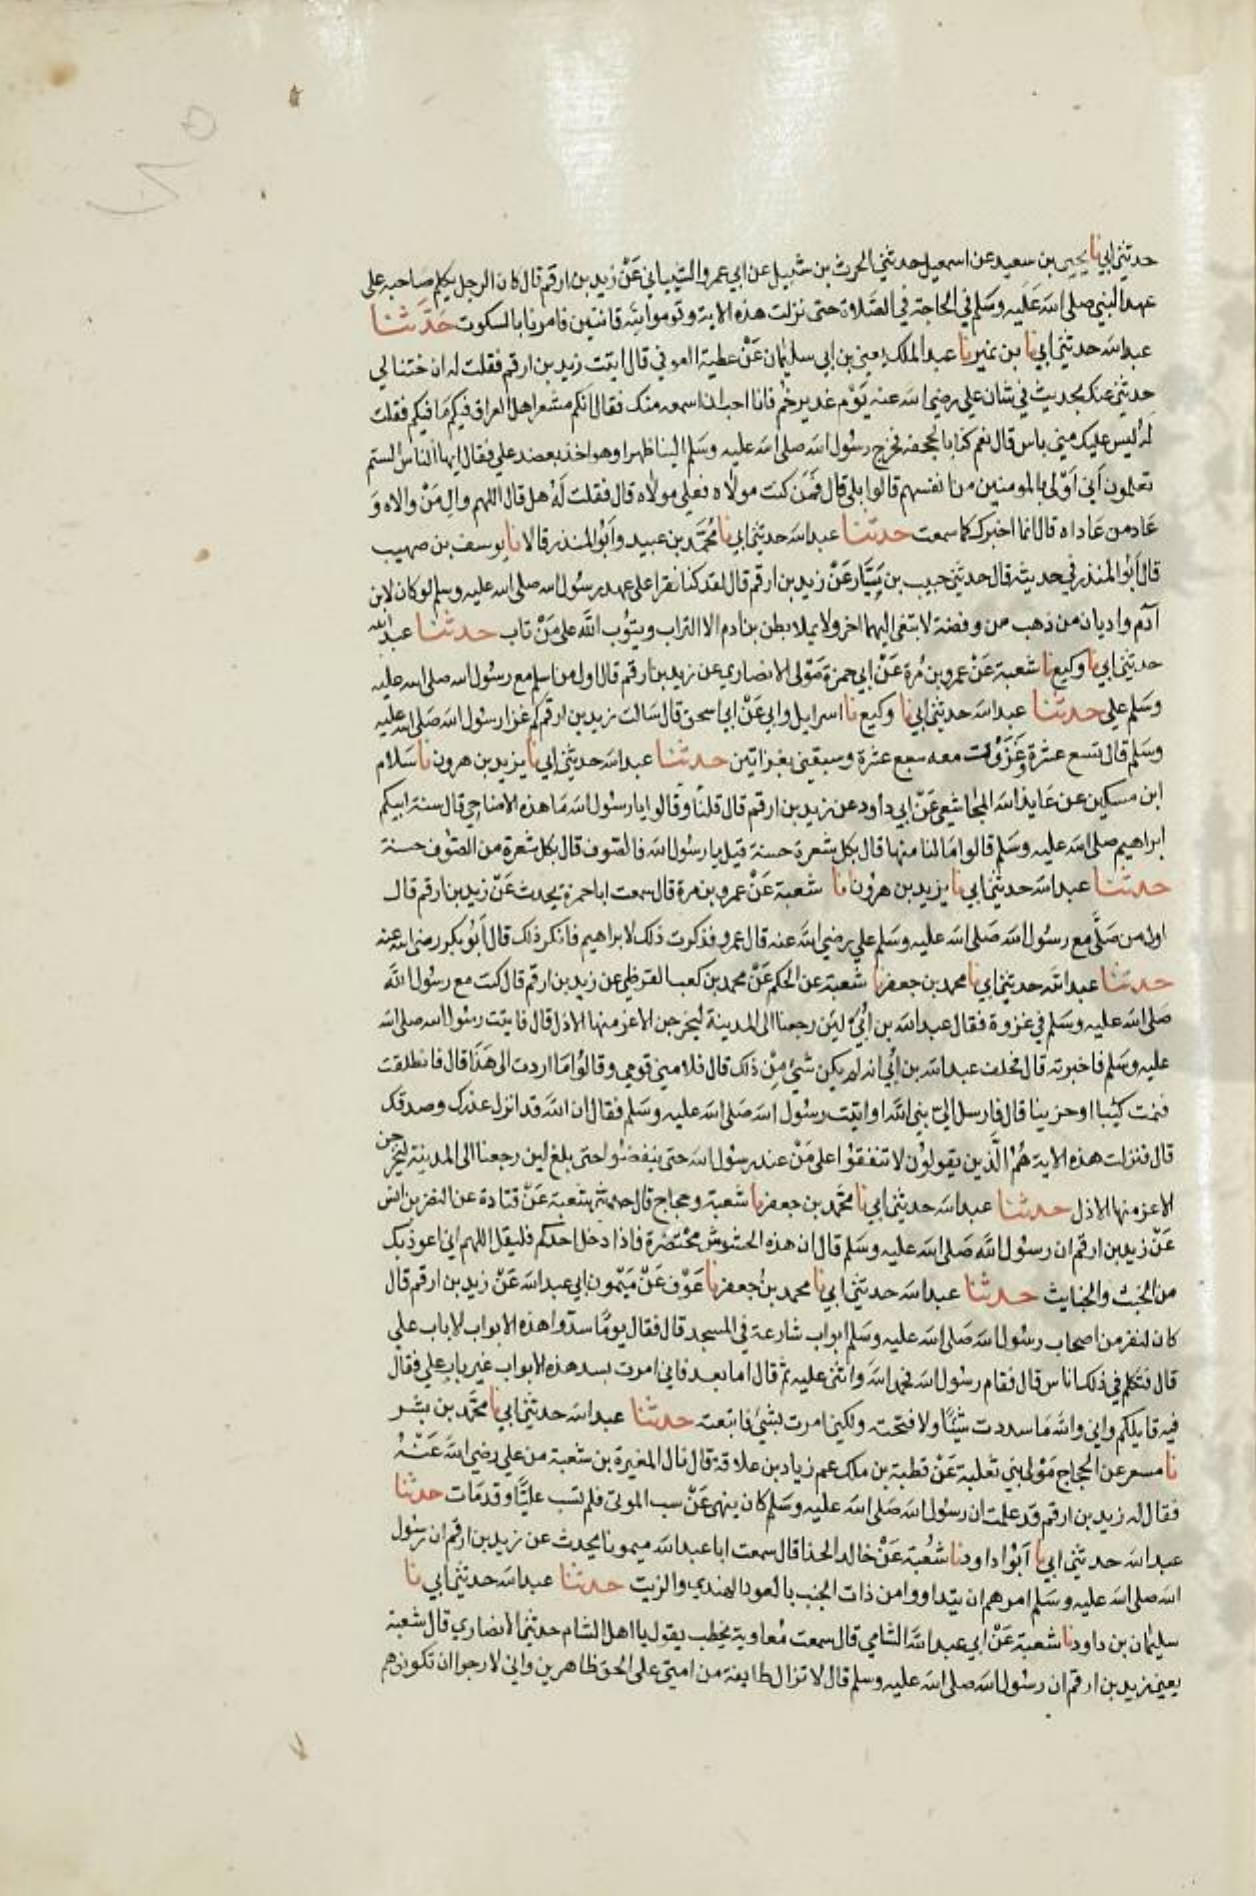 حدثني ابي نا يحيى بن سعيد عن اسمعيل حدثني الحرث بن شبيل عن ابي عمرو الشيباني عَنْ زيد بن ارقم قال كان الرجل يكلم صاحبه على
عهد النبي صلى الله عَلَيه وسَلم في الحاجة في الصَّلاة حتى نزلت هذه الاية وقوموا لله قانتين فامرنا بالسكوت حَدَّثَنَا
عبد الله حدثني ابي نا بن نمير نا عبد الملك يعني بن ابي سليمان عَنْ عطية العوفي قال اتيت زيد بن ارقم فقلت له ان ختنا لي
حدثني عنك بحديث في شان علي رضي الله عنه يَوْم غدير خُم فانا احب ان اسمعه منك فقال انكم معشر اهل العراق فيكم مَا فيكم فقلت
لهُ ليس عليك مني باس قال نعم كنا بالجحفة فخرج رسُول الله صلى الله عليه وسَلم الينا ظهرا وهو اخذ بعضد علي فقال ايها الناس الستم
تعلمون اَني اَوْلى بالمومنين من انفسهم قالوا بلى قال فَمَن كنت مولاه فعلي مولاه قال فقلت لَهُ هل قال اللهم وال مَنْ والاه وَ
عَاد من عَاداه قال انما اخبرك كما سمعت حدثنا عبد الله حدثني ابي نا مُحَمَّد بن عبيد واَبُو المنذر قالا نا يوسف بن صهيب
قال اَبُو المنذر في حديثه قال حدثني حبيب بن يَسَار عَنْ زيد بن ارقم قال لقد كنا نقرا على عهد رسُول الله صلى الله عليه وسلم لو كان لابن
آدم واديان من ذهب وفضة لابتغى اليهما اخر ولا يملا بطن بن ادم الا التراب ويتُوب الله على مَنْ تاب حدثنا عبد الله
حدثني ابي نا وكيع نا شعبة عَنْ عمرو بن مُرة عَنْ ابي حمزة مَوْلى الانصاري عن زيد بن ارقم قال اول من اسلم مع رسُول الله صلى الله عليه
وسَلم علي حدثنا عبد الله حدثني ابي نا وكيع نا اسرايل وابي عَنْ ابي اسحق قال سَالت زيد بن ارقم كم غزا رسُول الله صَلى الله عليه
وسَلم قال تسع عشرة وغَزَوْت معه سبع عشرة وسبقني بغزاتين حدثنا عبد الله حدثني ابي نا يزيد بن هرون نا سَلام
ابن مسكين عن عَايذ الله المجَاشعي عَنْ ابي داود عن زيد بن ارقم قال قلنَا وقالوا يا رسُول الله مَا هذه الاضاحي قال سنة ابيكم
ابراهيم صلى الله عليه وسَلم قالوا مَا لنا منها قال بكل شعرة حسنة قيل يا رسُول الله فالصُوف قال بكل شعرة من الصُوف حسنة
حدثنا عبد الله حدثني ابي نا يزيد بن هرُون انا شعبة عَنْ عمرو بن مرة قال سمعت ابا حمزة يحدث عَنْ زيد بن ارقم قال
اول من صَلَّى مع رسُول الله صَلى الله عليه وسَلم علي رضي الله عنه قال عمرو فذكرت ذلك لابراهيم فانكر ذلك قال اَبُو بكر رضي الله عنه
حدثنا عبد الله حدثني ابي نا محمد بن جعفر نا شعبة عن الحكم عَنْ محمد بن كعب القرظي عن زيد بن ارقم قال كنت مع رسُول الله
صَلى الله عليه وسَلم في غزوة فقال عبد الله بن اُبيّ لين رجعنا الى المدينة ليخرجن الاعز منها الاذل قال فاتيت رسُول الله صلى الله
عليه وسَلم فاخبرته قال فحلف عبد الله بن اُبي انه لم يكن شيْ مِنْ ذلك قال فلامني قومي وقالُوا مَا اردت الى هَذَا قال فانطلقت
فنمت كئيبا او حزينا قال فارسل اليّ نبي الله او اتيت رسُول الله صَلى الله عليه وسَلم فقال ان الله قد انزل عذرك وصدقك
قال فنزلت هذه الاية هُمُ الَّذين يقولوُن لا تنفقوُا على مَنْ عند رسُول الله حتى ينفضُوا حتى بلغ لين رجعنا الى المدينة ليخرجن
الاعز منها الاذل حدثنا عبد الله حدثني ابي نا محَمَّد بن جعفر نا شعبة وحجاج قال حدثني شعبة عَنْ قتادة عن النضر بن انس
عَنْ زيد بن ارقم ان رسُول الله صَلى الله عليه وسَلم قال ان هذه الحشوش مُحْتضَرة فاذا دخل احدكم فليقل اللهم اني اعوذ بك
من الخبث والخبايث حدثنا عبد الله حدثني ابي نا محمد بن جعفر نا عَوْف عَنْ مَيْمون ابي عبد الله عَنْ زيد بن ارقم قال
كان لنفر من اصحاب رسُول الله صَلى الله عليه وسَلم ابواب شارعة في المسجد قال فقال يومًا سدّوا هذه الابواب الا باب علي
قال فتكلم في ذلك اناس قال فقام رسُول الله فحمد الله وَاثنى عليه ثم قال اما بعد فاني امرت بسد هذه الابواب غير باب علي فقال
فيه قايلكم واني والله مَا سددت شَيْئًا ولا فتحته ولكني امرت بشيْ فاتبعته حدثنا عبد الله حدثني ابي نا محَمَّد بن بشر
نا مسعر عن الحجاج مَوْلى بني ثعلبة عَنْ قطبة بن ملك عم زياد بن علاقة قال نال المغيرة بن شعبة من علي رضي الله عَنْهُ
فقال له زيد بن ارقم قد علمت ان رسُول الله صَلى الله عليه وسَلم كان ينهى عَنْ سب الموتى فلم تسب عليًّا وقد مَات حدثنا
عبد الله حدثني ابي نا اَبُو داود نا شُعْبة عَنْ خالد الحذا قال سمعت ابا عبد الله ميمونا يحدث عن زيد بن ارقم ان رسُول
الله صلى الله عليه وسَلم امرهم ان يتداووا من ذات الجنب بالعود الهندي والزيت حدثنا عبد الله حدثني ابي نا
سليمان بن داود نا شعبة عَنْ ابي عبد الله الشامي قال سمعت مُعاوية يخطب يقول يا اهل الشام حدثني الانصاري قال شعبة
يعني زيد بن ارقم ان رسُول الله صَلى الله عليه وسلم قال لا تزال طايفة من امتي على الحق ظاهرين واني لارجوا ان تكونوهم